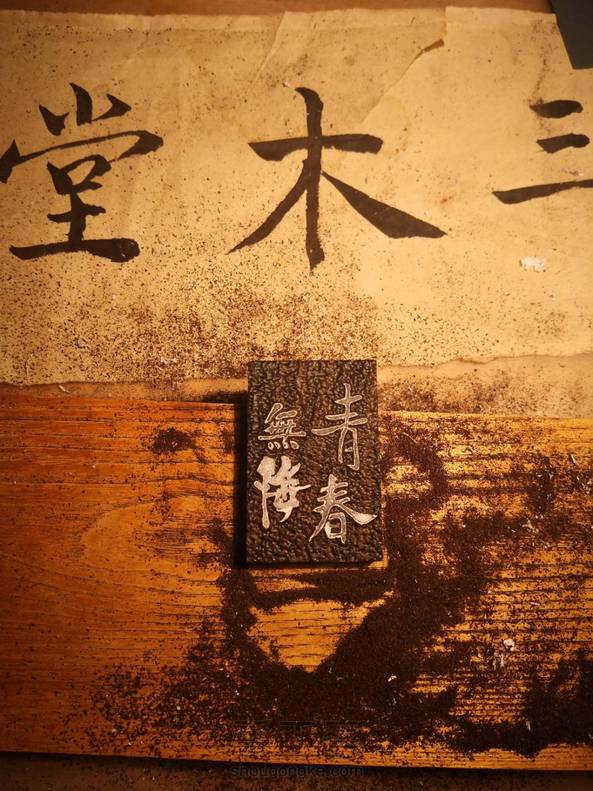 三木堂
青春
無悔
shougongke.com